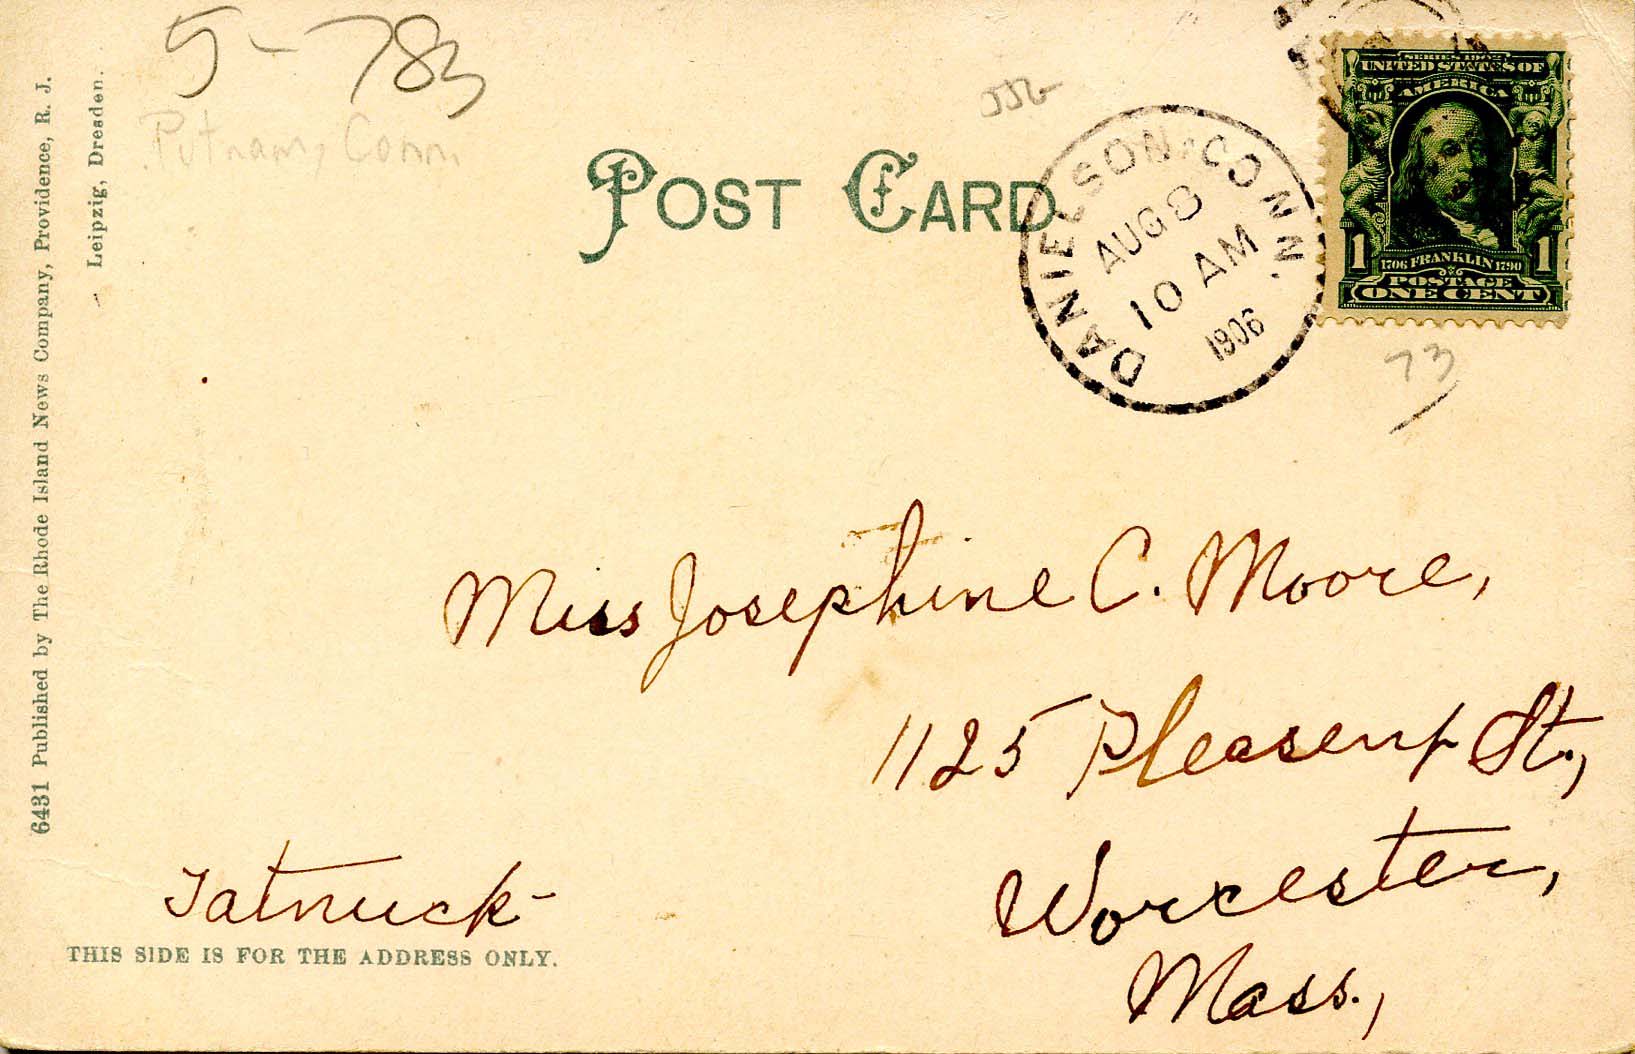 5-783
Putnam, Conn.
POST CARD
DANIELSON, CONN.
AUG 8
10 AM
1906
SERIES 1902
UNITED STATES OF
AMERICA
1 1706 FRANKLIN 1790 1
POSTAGE
ONE CENT
73
6431 Published by The Rhode Island News Company, Providence, R. J.
Leipzig, Dresden.
Miss Josephine C. Moore,
1125 Pleasent St.,
Worcester,
Mass.,
Tatnuck-
THIS SIDE IS FOR THE ADDRESS ONLY.